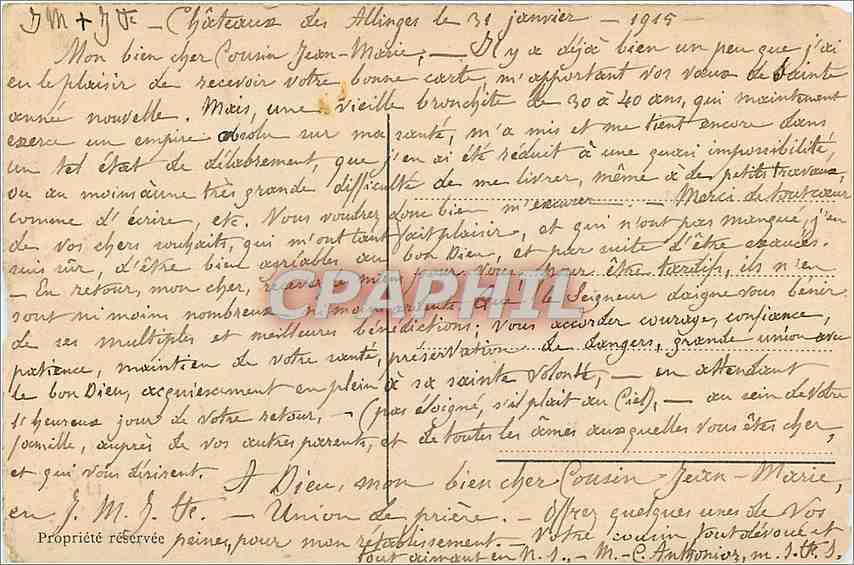 J M + J Ste – Châteaux des Allinges le 31 janvier – 1915 –
Mon bien cher Cousin Jean-Marie, – Il y a déjà bien un peu que j'ai
eu le plaisir de recevoir votre bonne carte, m'apportant vos vœux de sainte
année nouvelle. Mais, une vieille bronchite de 30 à 40 ans, qui maintenant
exerce un empire absolu sur ma santé, m'a mis et me tient encore dans
un tel état de délabrement, que j'en ai été réduit à une quasi impossibilité,
ou au moins à une très grande difficulté de me livrer, même à de petits travaux,
comme d'écrire, etc. Vous voudrez donc bien m'excuser. – Merci de tout cœur
de vos chers souhaits, qui m'ont tant fait plaisir, et qui n'ont pas manqué, j'en
suis sûr, d'être bien agréables au bon Dieu, et par suite d'être exaucés.
– En retour, mon cher, recevez les miens pour vous pour être tardifs, ils n'en
sont ni moins nombreux ni moins ardents que le Seigneur daigne vous bénir
de ses multiples et meilleures bénédictions; vous accorder courage, confiance,
patience, maintien de votre santé, préservation de dangers, grande union avec
le bon Dieu, acquiescement en plein à sa sainte volonté, – en attendant
l'heureux jour de votre retour, – (pas éloigné, s'il plait au Ciel), – au sein de votre
famille, auprès de vos autres parents, et de toutes les âmes auxquelles vous êtes cher,
et qui vous désirent. A Dieu, mon bien cher Cousin Jean-Marie,
en J. M. J. Ste. – Union de prière. – Offrez quelques unes de vos
peines, pour mon rétablissement. – Votre cousin tout dévoué et
tout aimant en N. S., – M.-C. m. S.
Propriété réservée
CPAPHIL